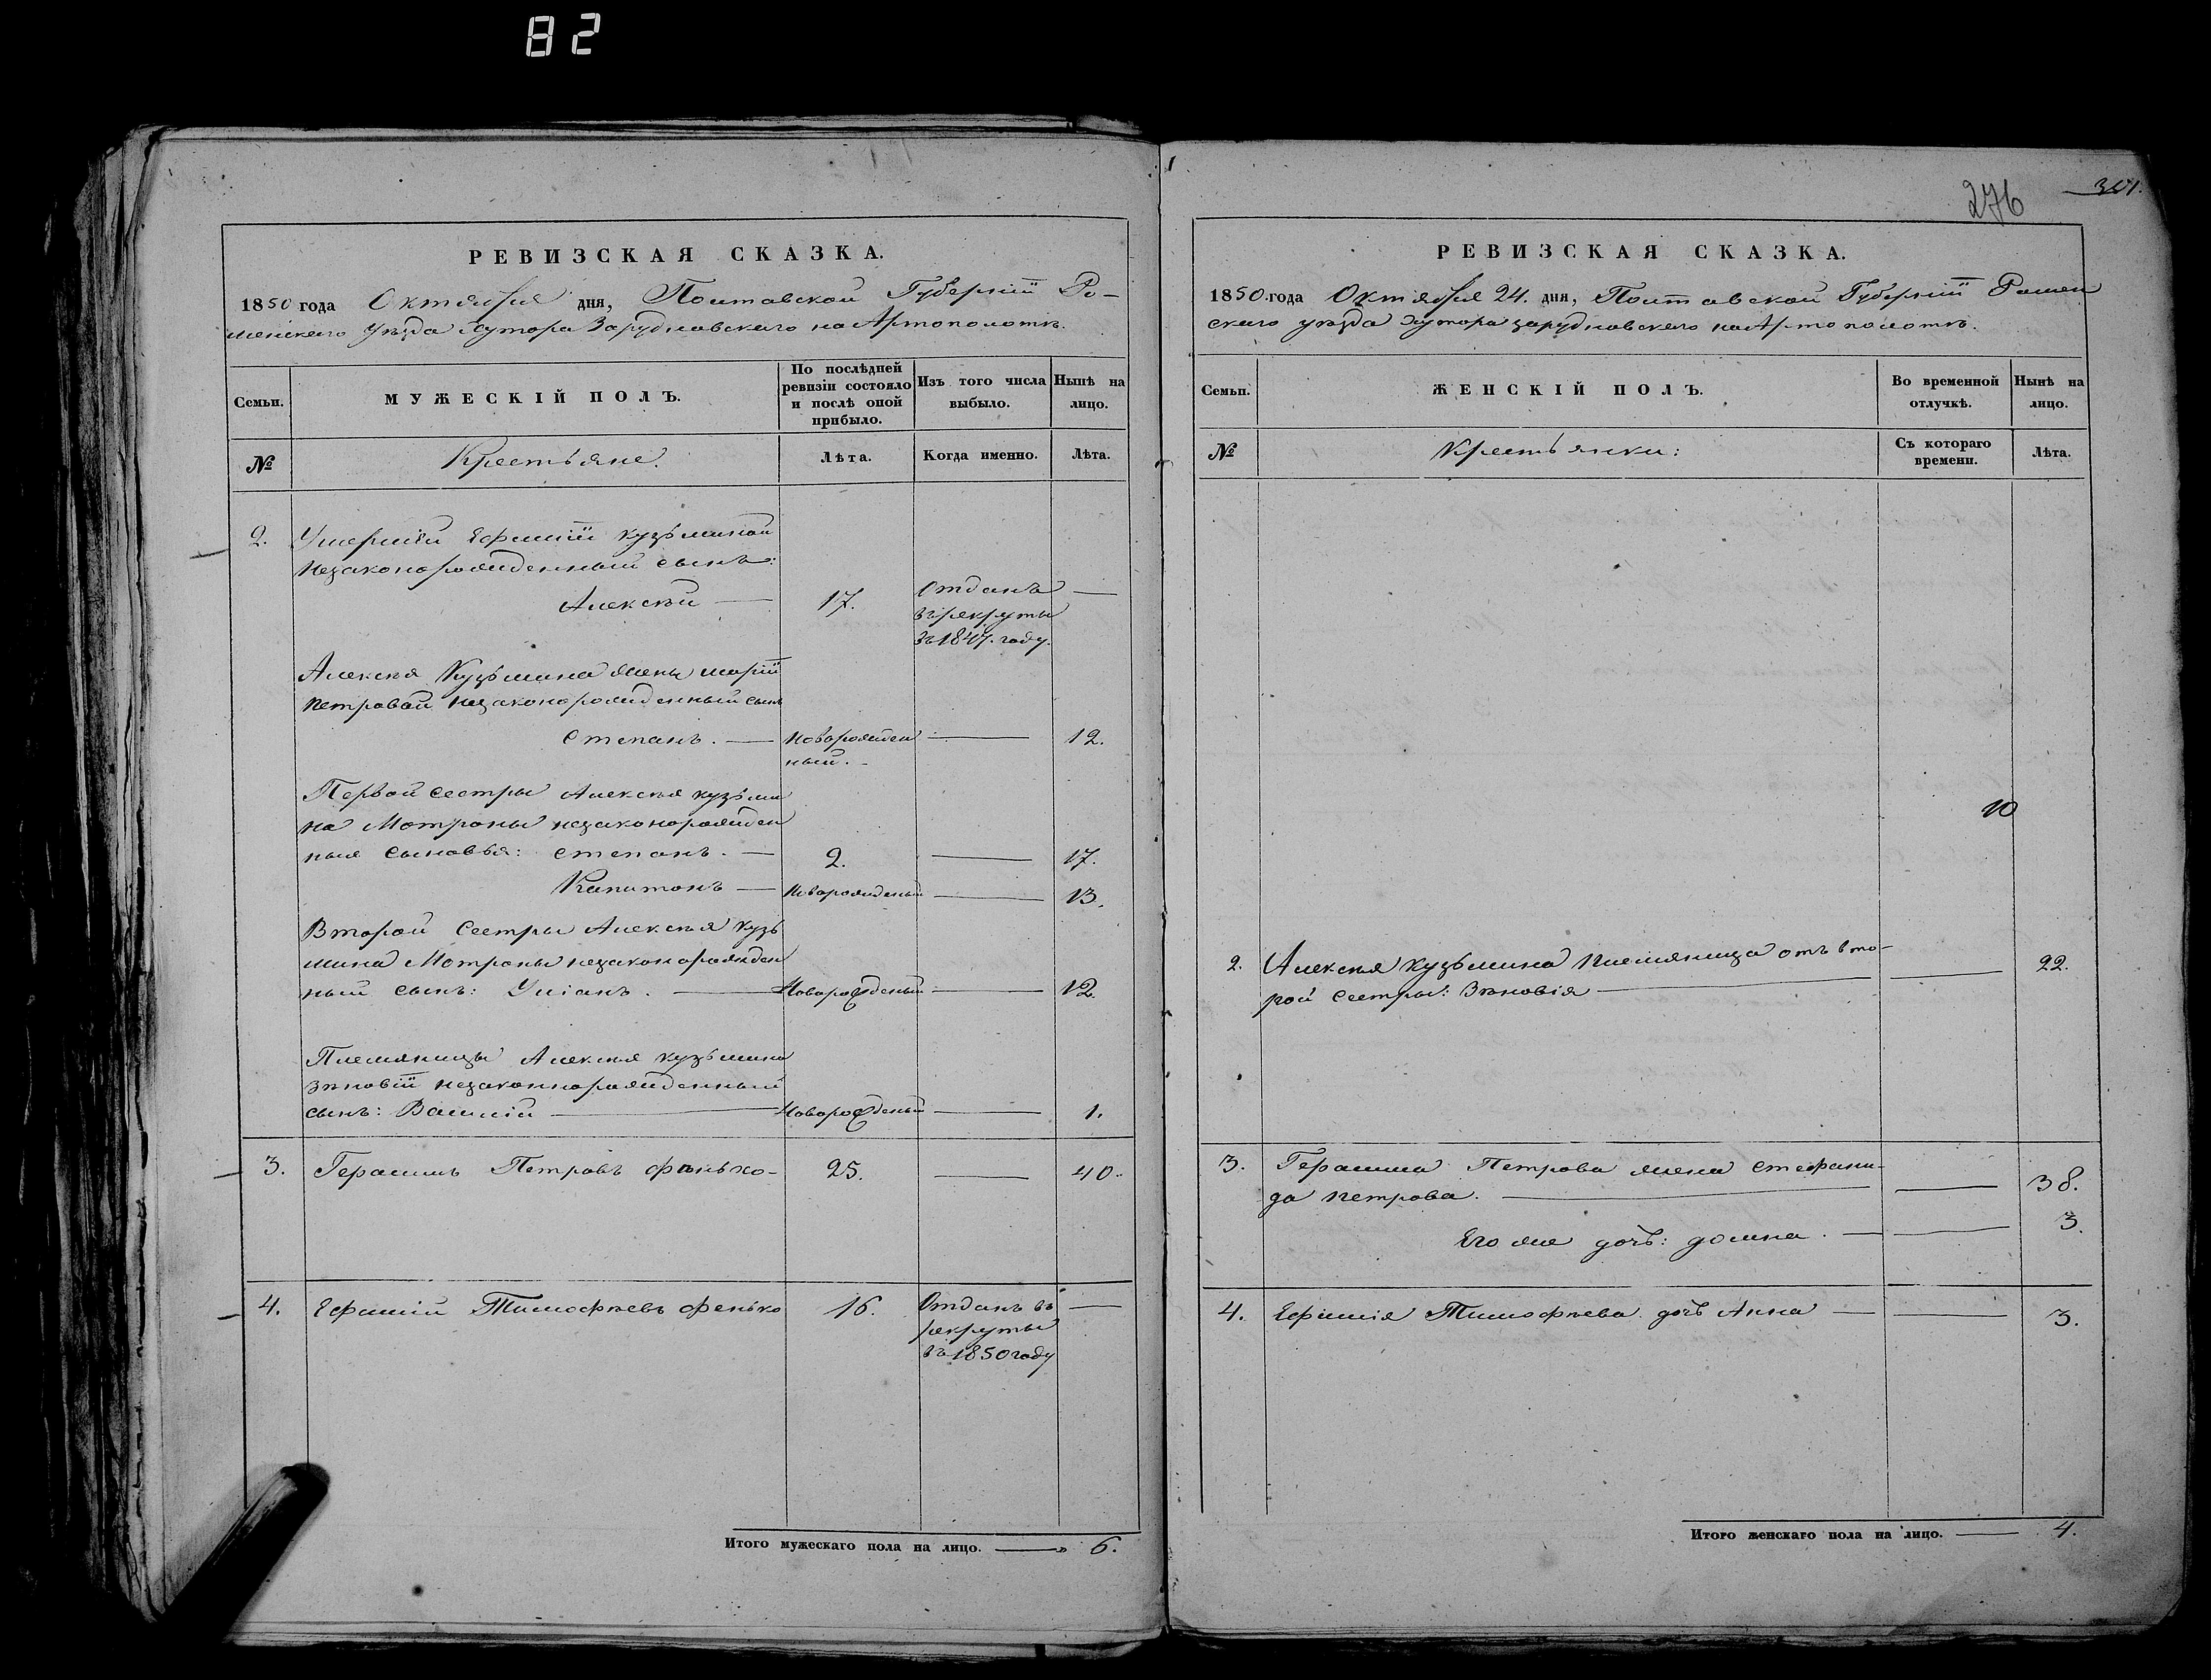 82
276
301.
РЕВИЗСКАЯ СКАЗКА.
1850 года Октября дня, Полтавской Губерніи Ро-
менскаго Уѣзда Хутора Зарудновскаго на Артополотѣ.
Семьи.
МУЖЕСКІЙ ПОЛЪ.
По послѣдней
ревизіи состояло
и послѣ оной
прибыло.
Изъ того числа
выбыло.
Нынѣ на
лицо.
№
Крестьяне.
Лѣта.
Когда именно.
Лѣта.
2. Умершей Ефиміи Кузьминой
незаконорожденный сынъ:
Алексѣй — 17. Отданъ —
въ рекруты
въ 1847. году.
Алексѣя Кузьмина жены Маріи
Петровой незаконорожденный сынъ
Степанъ. — новорожден — 12.
ный.
Первой сестры Алексѣя Кузьми
на Мотроны незаконорожден
ныя сыновья: Степанъ. — 2. — 17.
Капитонъ — новорожденый — 13.
Второй сестры Алексѣя Кузь
мина Мотроны незаконорожден
ный сынъ: Уліанъ. — новорожденый — 12.
Племяницы Алексѣя Кузьмина
Зѣновіи незаконнорожденный
сынъ: Василій — новорожденый — 1.
3. Герасимъ Петровъ Фѣнько- 25. — 40.
4. Ефимій Тимофѣевъ Фенько 16. Отданъ въ —
рекруты
въ 1850 году
Итого мужескаго пола на лицо. — 6.
РЕВИЗСКАЯ СКАЗКА.
1850 года Октября 24. дня, Полтавской Губерніи Ромен
скаго уѣзда Хутора Зарудновскаго на Артополотѣ.
Семьи.
ЖЕНСКІЙ ПОЛЪ.
Во временной
отлучкѣ.
Нынѣ на
лицо.
№
Крестьянки:
Съ котораго
времени.
Лѣта.
10
2. Алексѣя Кузьмина племяница отъ вто-
рой сестры: Зѣновія — — 22.
3. Герасима Петрова жена Стефани-
да Петрова. — — 38.
Его же дочь: Домна. — — 3.
4. Ефимія Тимофѣева дочь Анна — — 3.
Итого женскаго пола на лицо. — 4.